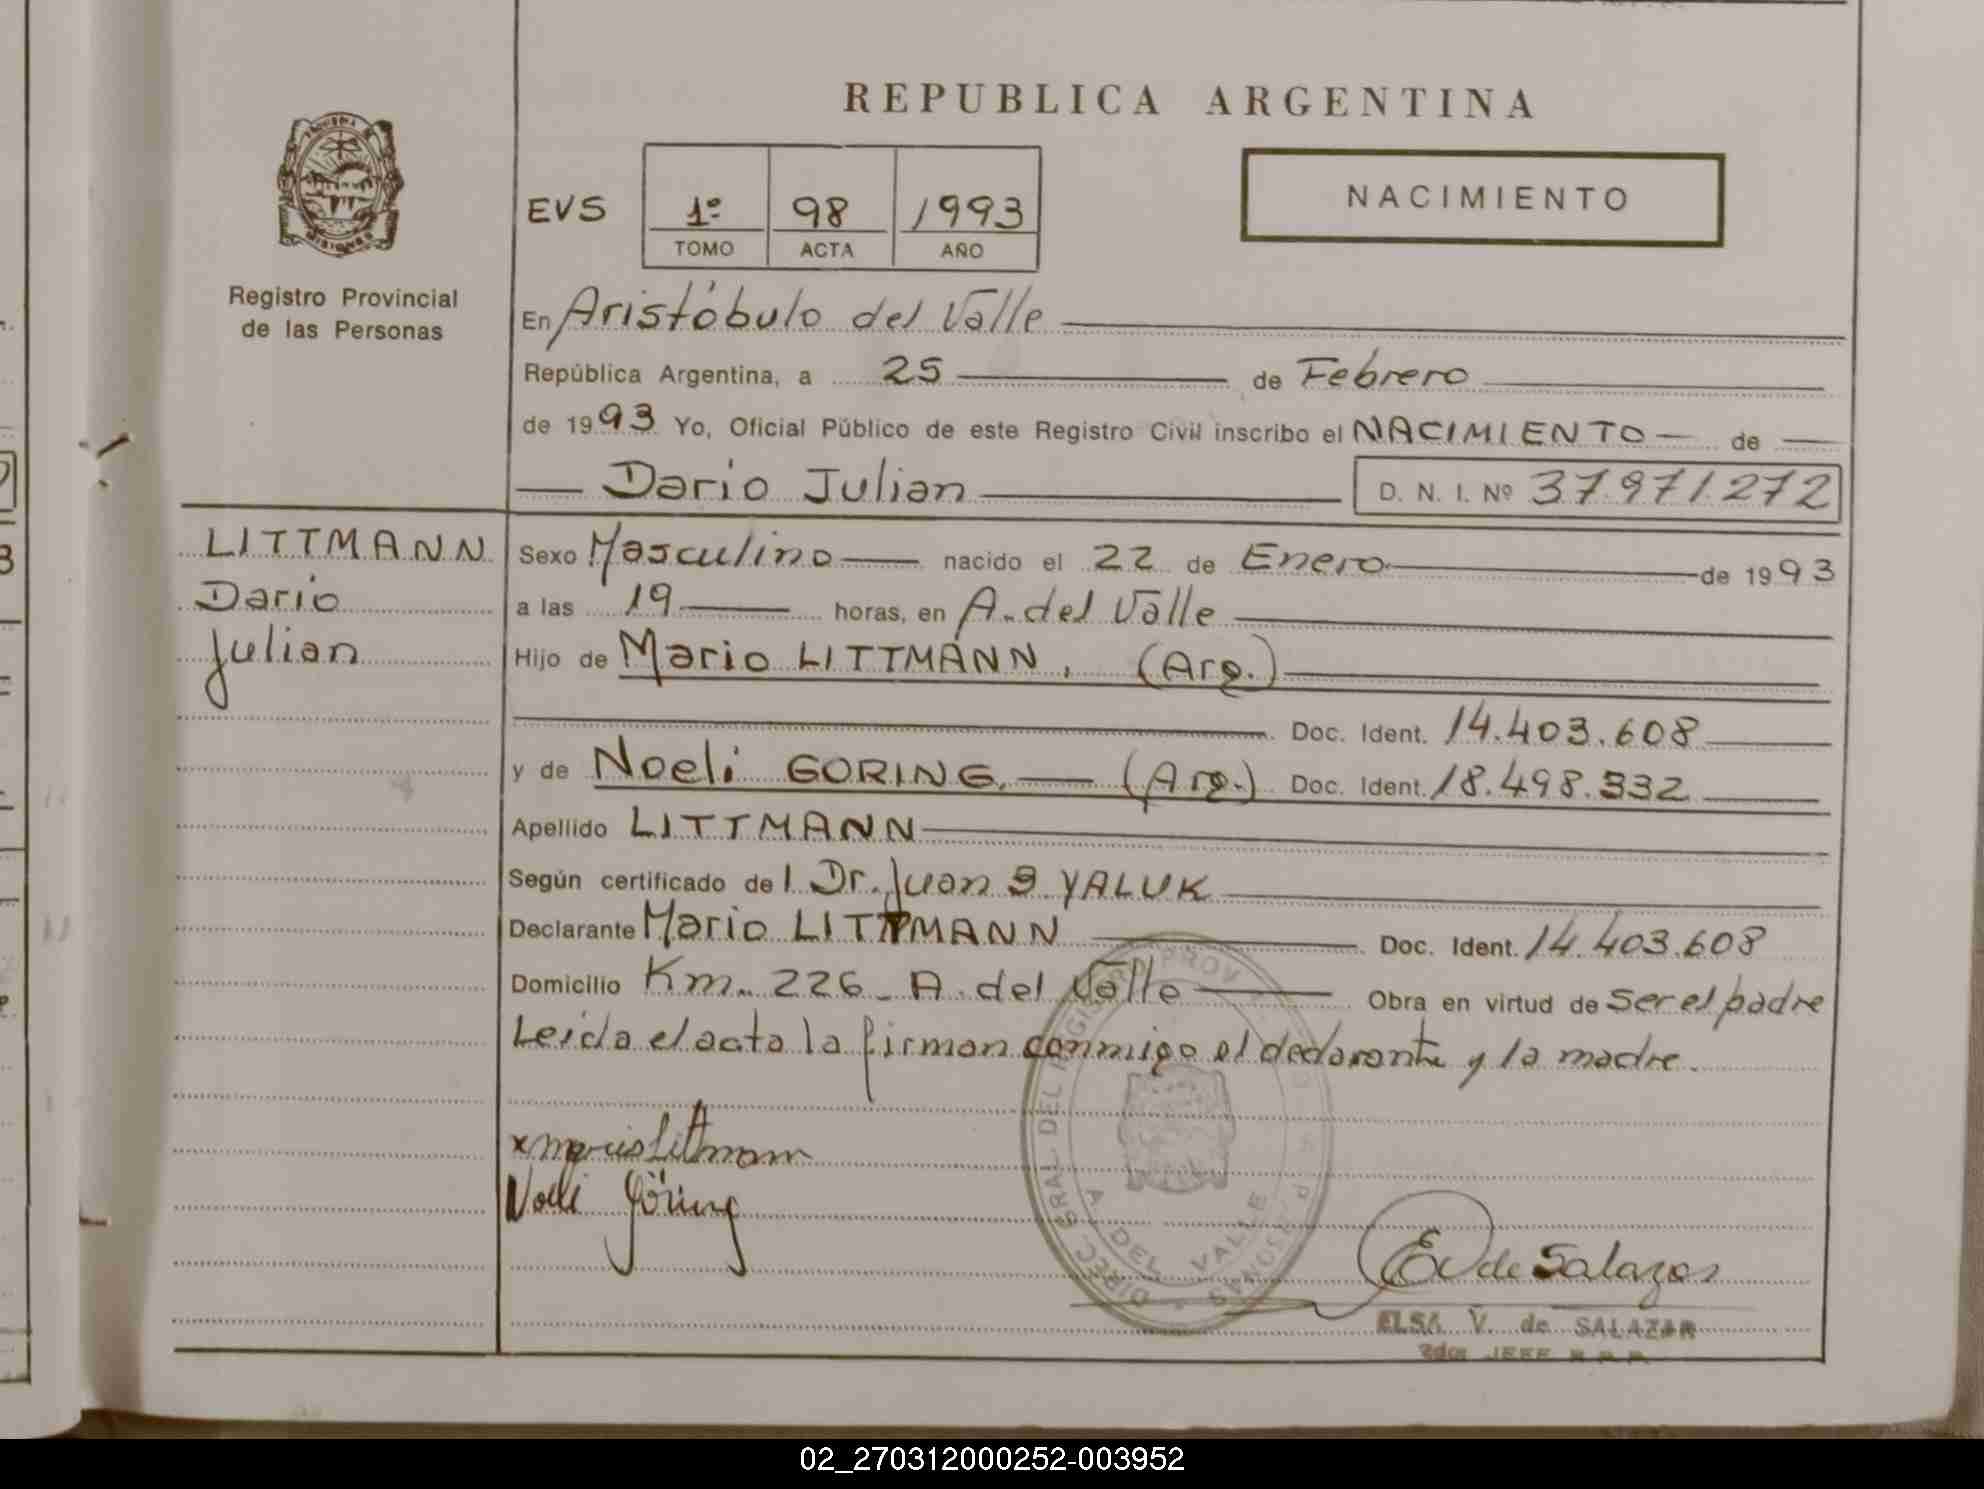 REPUBLICA ARGENTINA
EVS
1º 98 1993
TOMO ACTA AÑO
NACIMIENTO
Registro Provincial
de las Personas
En Aristóbulo del Valle
República Argentina, a 25 de Febrero
de 1993 Yo, Oficial Público de este Registro Civil inscribo el NACIMIENTO de
Dario Julian D. N. I. Nº 37.971.272
LITTMANN
Dario
Julian
Sexo Masculino nacido el 22 de Enero de 1993
a las 19 horas, en A. del Valle
Hijo de Mario LITTMANN, (Arg.)
Doc. Ident. 14.403.608
y de Noeli GORING. (Arg.) Doc. Ident. 18.498.332
Apellido LITTMANN
Según certificado del Dr. Juan YALUK
Declarante Mario LITTMANN Doc. Ident. 14.403.608
Domicilio Km. 226 - A. del Valle Obra en virtud de ser el padre
Leída el acta la firman conmigo el declarante y la madre.
x mario Littmann
Noeli Göring
DIREC. GRAL DEL REGISTRO PROV PERSONAS
A DEL VALLE
E V de Salazar
ELSA V. de SALAZAR
2do JEFE R.P.P.
PROVINCIA DE
MISIONES
02_270312000252-003952